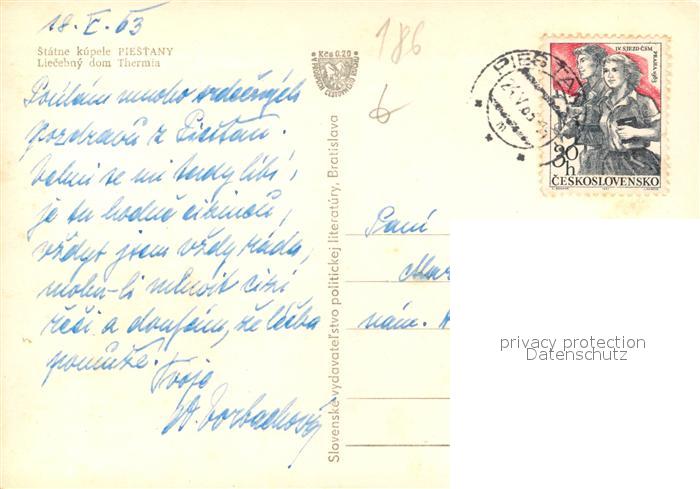 18. V. 63
Štátne kúpele PIEŠŤANY
Liečebný dom Thermia
Posílám mnoho srdečných
pozdravů z Piešťan.
Velmi se mi tady líbí,
je tu hodně cizinců,
vždyt jsem vždy ráda,
mohu-li mluvit cizí
řečí a doufám, že léčba
pomůže.
Tvoje
Kčs 0,20
186
6
Slovenské vydavateľstvo politickej literatúry, Bratislava
PIEŠŤANY
IV. SJEZD ČSM
PRAHA 1963
30 h
ČESKOSLOVENSKO
Paní
Mar
nám.
privacy protection
Datenschutz